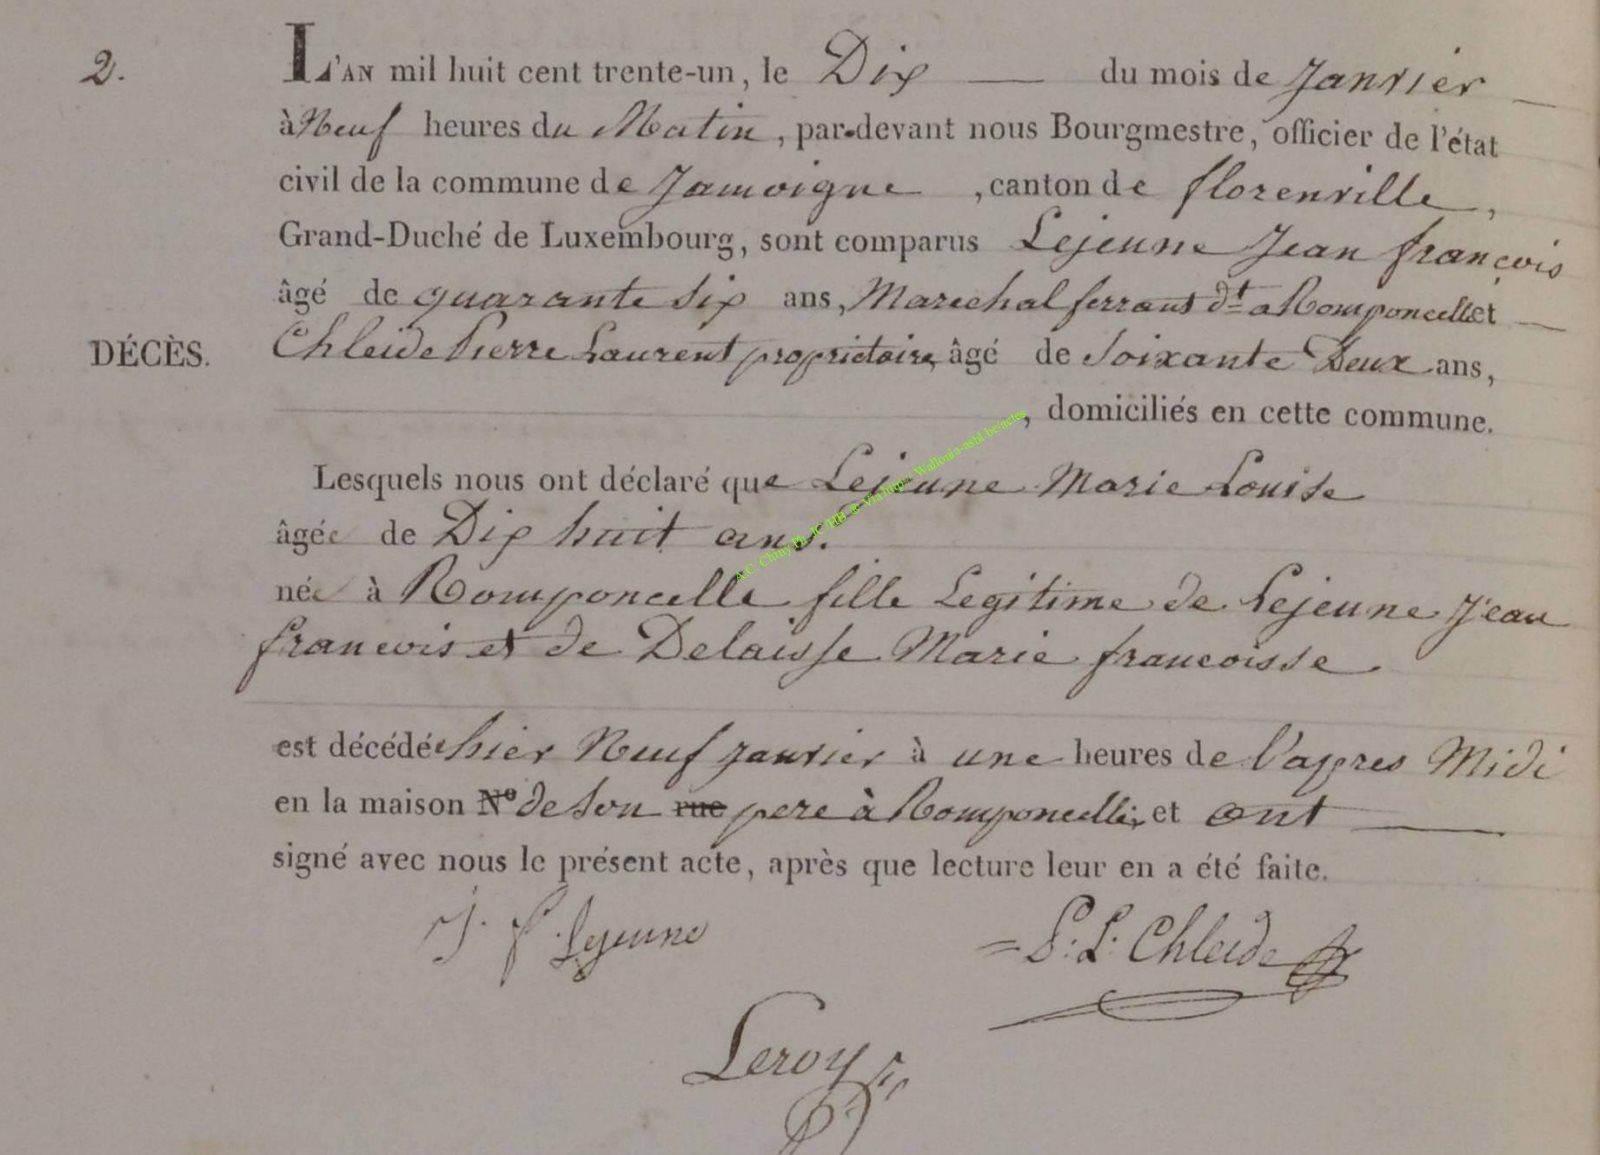 2.
L'AN mil huit cent trente-un, le Dix du mois de Janvier
à Neuf heures du Matin, par-devant nous Bourgmestre, officier de l'état
civil de la commune de Jamoigne, canton de florenville,
Grand-Duché de Luxembourg, sont comparus Lejeune Jean françois
âgé de quarante six ans, Marechal ferrant dt a Romponcelle et
DÉCÈS.
Chleide Pierre Laurent proprietaire, âgé de Soixante Deux ans,
, domiciliés en cette commune.
Lesquels nous ont déclaré que Lejeune Marie Louise
âgée de Dix huit ans.
née à Romponcelle fille Legitime de Lejeune Jean
francois et de Delaisse Marie francoisse
est décédée hier Neuf janvier à une heures de l'apres Midi
en la maison N° de Son rue pere à Romponcelle, et ont
signé avec nous le présent acte, après que lecture leur en a été faite.
J. f. Lejeune
P: L: Chleide
Leroy
A.C. Chiny Ph. JC HB @ Via https Wallonia-asbl.be/actes